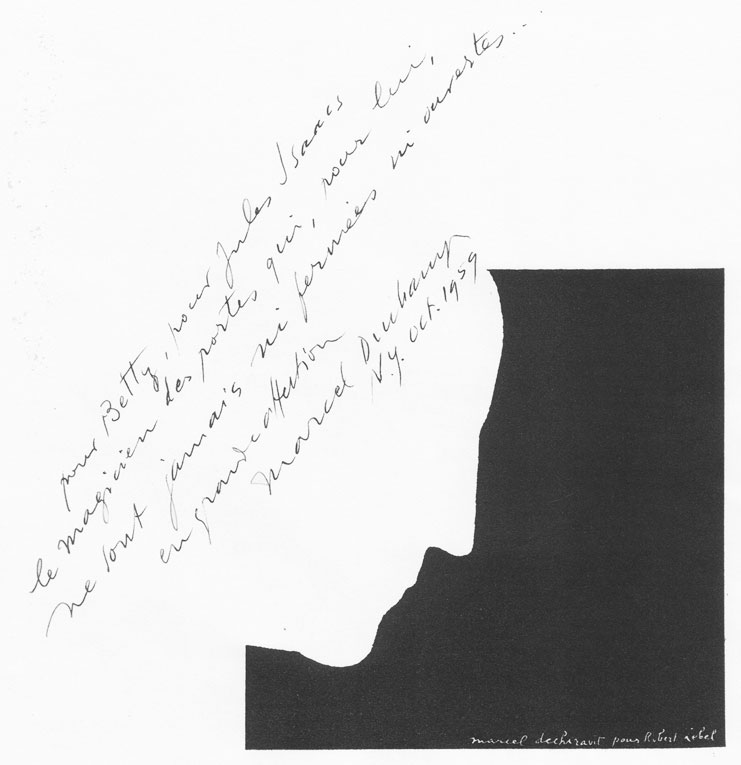 pour Betty, pour Jules Isaacs
le magicien des portes qui, pour lui,
ne sont jamais ni fermées ni ouvertes...
en grande affection
Marcel Duchamp
N.Y. Oct. 1959
marcel dechiravit pour Robert Lebel